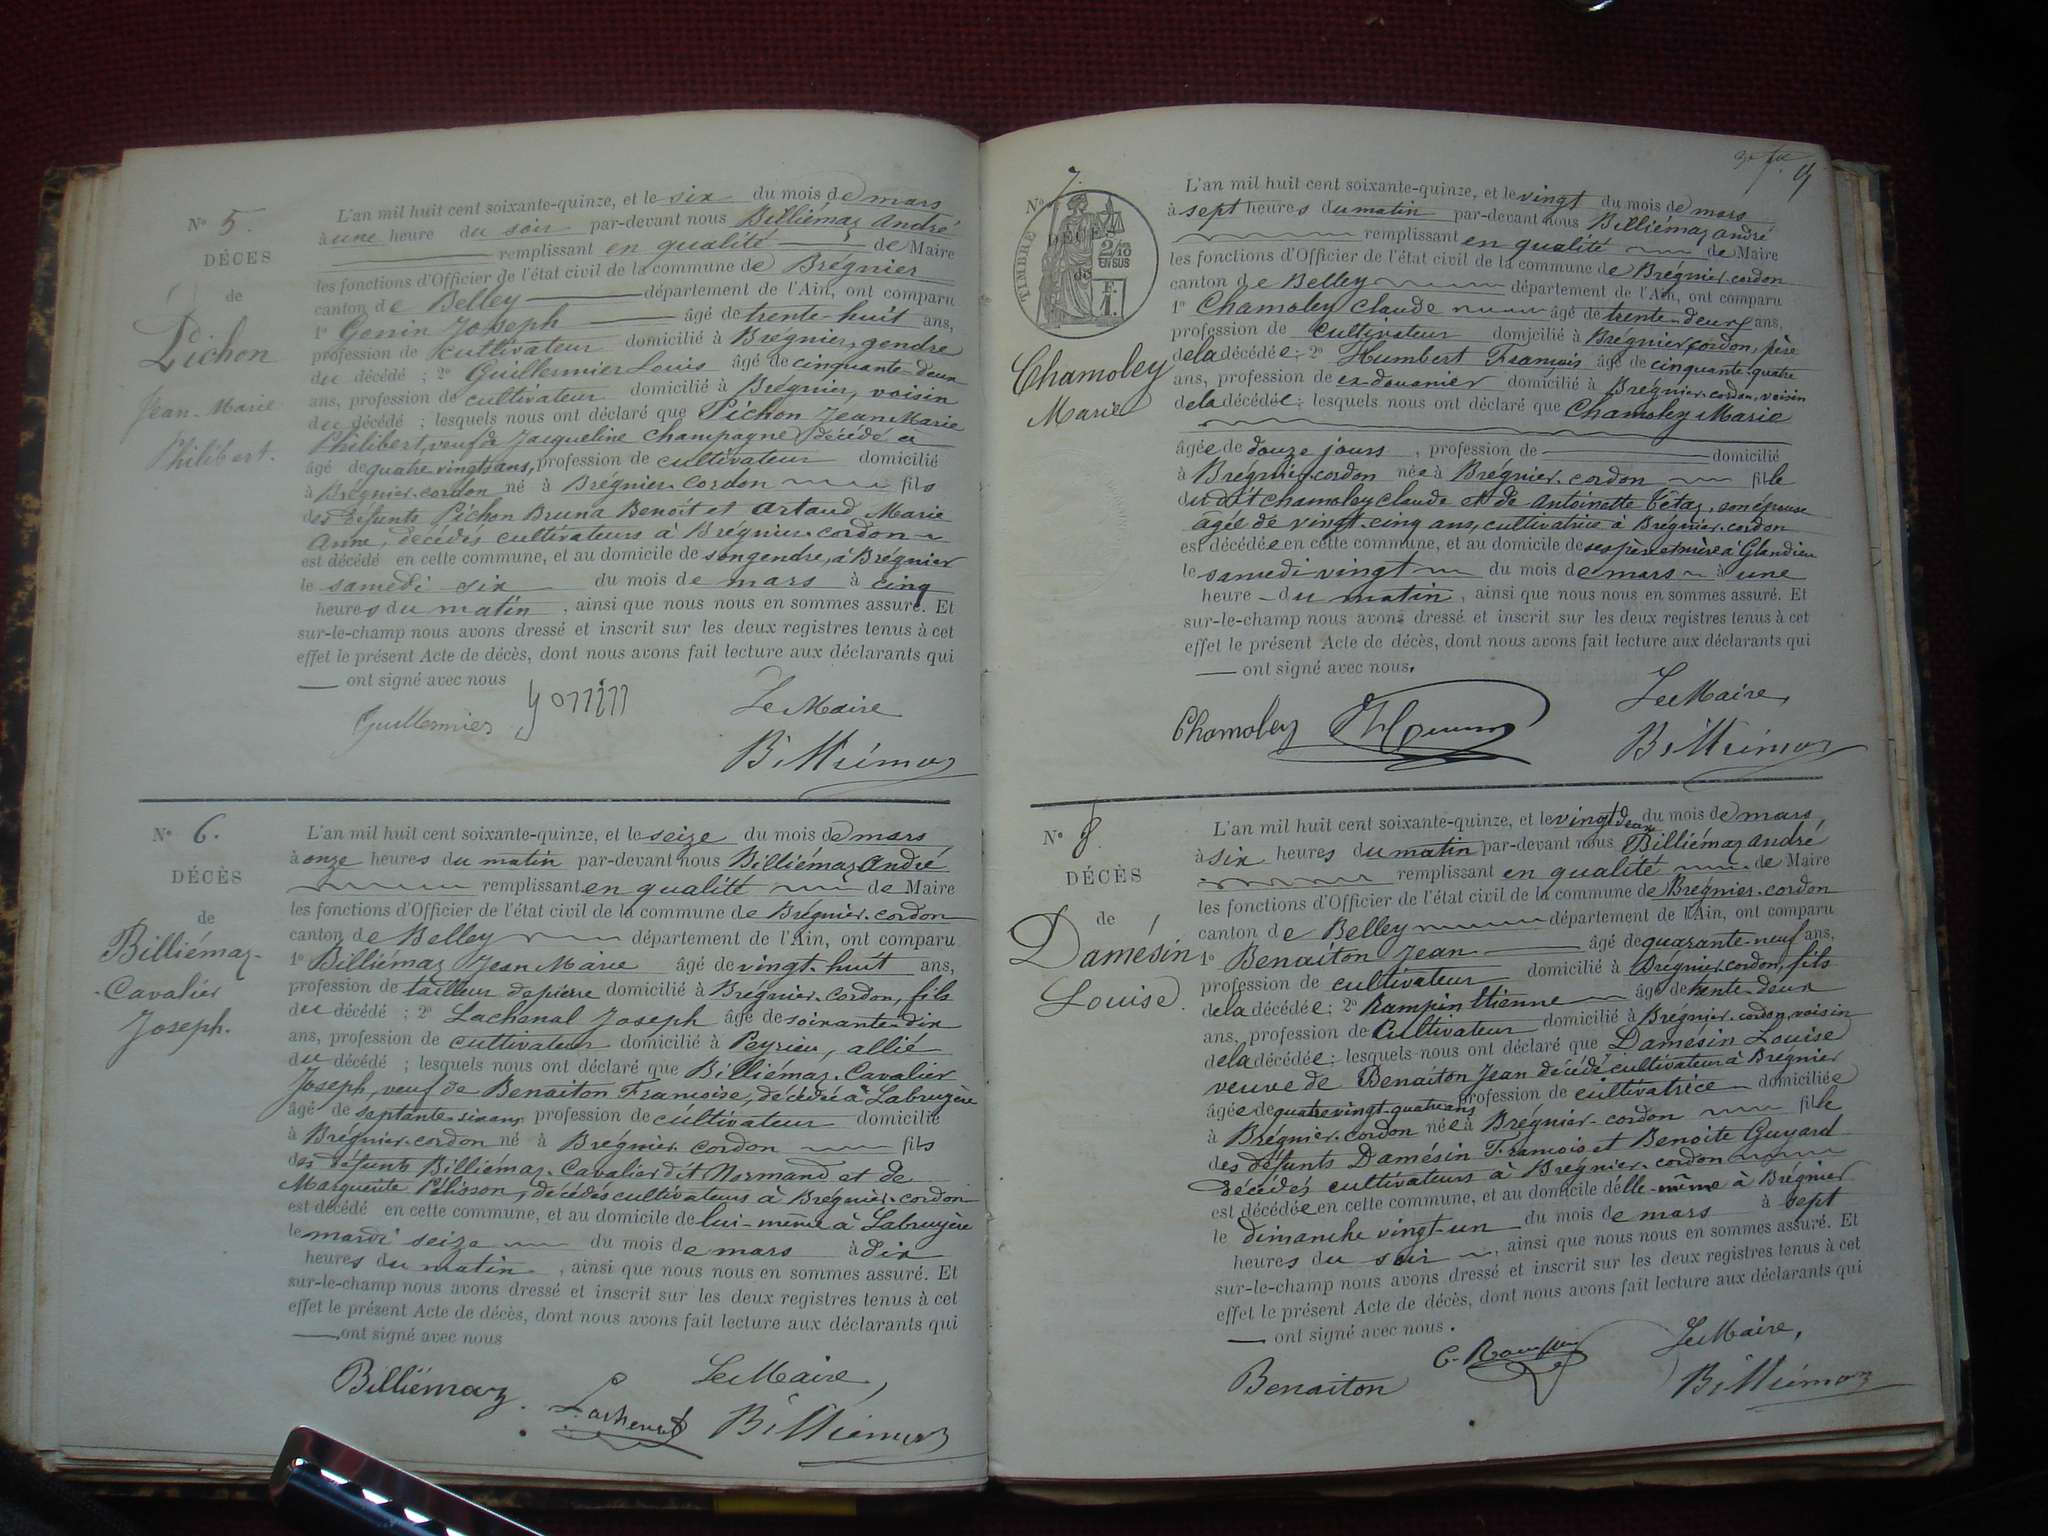 N° 5.
DÉCES
de
Pichon
Jean-Marie
Philibert.
L'an mil huit cent soixante-quinze, et le six du mois de mars
à une heure du soir par-devant nous Billiémaz André
remplissant en qualité de Maire
les fonctions d'Officier de l'état civil de la commune de Brégnier
canton de Belley département de l'Ain, ont comparu
1° Genin Joseph âgé de trente-huit ans,
profession de cultivateur domicilié à Brégnier, gendre
du décédé ; 2° Guillermier Louis âgé de cinquante-deux
ans, profession de cultivateur domicilié à Brégnier, voisin
du décédé ; lesquels nous ont déclaré que Pichon Jean Marie
Philibert, veuf de Jacqueline Champagne, décédé a
âgé de quatre vingts ans, profession de cultivateur domicilié
à Brégnier-cordon né à Brégnier-cordon fils
des défunts Pichon Bruna Benoît et Artaud Marie
Anne, décédés cultivateurs à Brégnier-cordon
est décédé en cette commune, et au domicile de son gendre, à Brégnier
le samedi six du mois de mars à cinq
heures du matin, ainsi que nous nous en sommes assuré. Et
sur-le-champ nous avons dressé et inscrit sur les deux registres tenus à cet
effet le présent Acte de décès, dont nous avons fait lecture aux déclarants qui
ont signé avec nous
Guillermier Le Maire
Billiémaz
N° 6.
DÉCÈS
de
Billiémaz-
Cavalier
Joseph.
L'an mil huit cent soixante-quinze, et le seize du mois de mars
à onze heures du matin par-devant nous Billiémaz André
remplissant en qualité de Maire
les fonctions d'Officier de l'état civil de la commune de Brégnier-cordon
canton de Belley département de l'Ain, ont comparu
1° Billiémaz Jean Marie âgé de vingt-huit ans,
profession de tailleur de pierre domicilié à Brégnier-cordon, fils
du décédé ; 2° Lachenal Joseph âgé de soixante-dix
ans, profession de cultivateur domicilié à Peyrieu, allié
du décédé ; lesquels nous ont déclaré que Billiémaz-Cavalier
Joseph, veuf de Benaiton Françoise, décédée à Labruyère
âgé de septante-six ans profession de cultivateur domicilié
à Brégnier-cordon né à Brégnier-cordon fils
des défunts Billiémaz-Cavalier dit Normand et de
Marguerite Pélisson, décédés cultivateurs à Brégnier-cordon
est décédé en cette commune, et au domicile de lui-même à Labruyère
le mardi seize du mois de mars à dix
heures du matin, ainsi que nous nous en sommes assuré. Et
sur-le-champ nous avons dressé et inscrit sur les deux registres tenus à cet
effet le présent Acte de décès, dont nous avons fait lecture aux déclarants qui
ont signé avec nous
Billiémaz. Lachenal Le Maire,
Billiémaz
N° 7.
DÉCÈS
de
TIMBRE
2/10
EN SUS
F.
1.
Chamoley
Marie
L'an mil huit cent soixante-quinze, et le vingt du mois de mars
à sept heures du matin par-devant nous Billiémaz André
remplissant en qualité de Maire
les fonctions d'Officier de l'état civil de la commune de Brégnier-cordon
canton de Belley département de l'Ain, ont comparu
1° Chamoley Claude âgé de trente-deux ans,
profession de cultivateur domicilié à Brégnier cordon, père
de la décédée ; 2° Humbert François âgé de cinquante-quatre
ans, profession de ex-douanier domicilié à Brégnier-cordon, voisin
de la décédée ; lesquels nous ont déclaré que Chamoley Marie
âgée de douze jours, profession de domicilié
à Brégnier-cordon née à Brégnier-cordon fille
du dit Chamoley Claude et de Antoinette Tétaz, son épouse
âgée de vingt-cinq ans, cultivatrice à Brégnier-cordon
est décédée en cette commune, et au domicile de ses père et mère à Glandieu
le samedi vingt du mois de mars à une
heure du matin, ainsi que nous nous en sommes assuré. Et
sur-le-champ nous avons dressé et inscrit sur les deux registres tenus à cet
effet le présent Acte de décès, dont nous avons fait lecture aux déclarants qui
ont signé avec nous.
Chamoley Le Maire,
Billiémaz
N° 8
DÉCÈS
de
Damésin
Louise
L'an mil huit cent soixante-quinze, et le vingt deux du mois de mars,
à six heures du matin par-devant nous Billiémaz André
remplissant en qualité de Maire
les fonctions d'Officier de l'état civil de la commune de Brégnier-cordon
canton de Belley département de l'Ain, ont comparu
1° Benaiton Jean âgé de quarante-neuf ans,
profession de cultivateur domicilié à Brégnier-cordon, fils
de la décédée ; 2° Rampin Etienne âgé de trente-deux
ans, profession de Cultivateur domicilié à Brégnier-cordon, voisin
de la décédée ; lesquels nous ont déclaré que Damésin Louise
veuve de Benaiton Jean décédé cultivateur à Brégnier
âgée de quatre vingt-quatre ans profession de cultivatrice domiciliée
à Brégnier-cordon née à Brégnier-cordon fille
des défunts Damésin François et Benoite Guyard
décédés cultivateurs à Brégnier-cordon
est décédée en cette commune, et au domicile d'elle-même à Brégnier
le dimanche vingt-un du mois de mars à sept
heures du soir, ainsi que nous nous en sommes assuré. Et
sur-le-champ nous avons dressé et inscrit sur les deux registres tenus à cet
effet le présent Acte de décès, dont nous avons fait lecture aux déclarants qui
ont signé avec nous.
Benaiton Le Maire,
Billiémaz